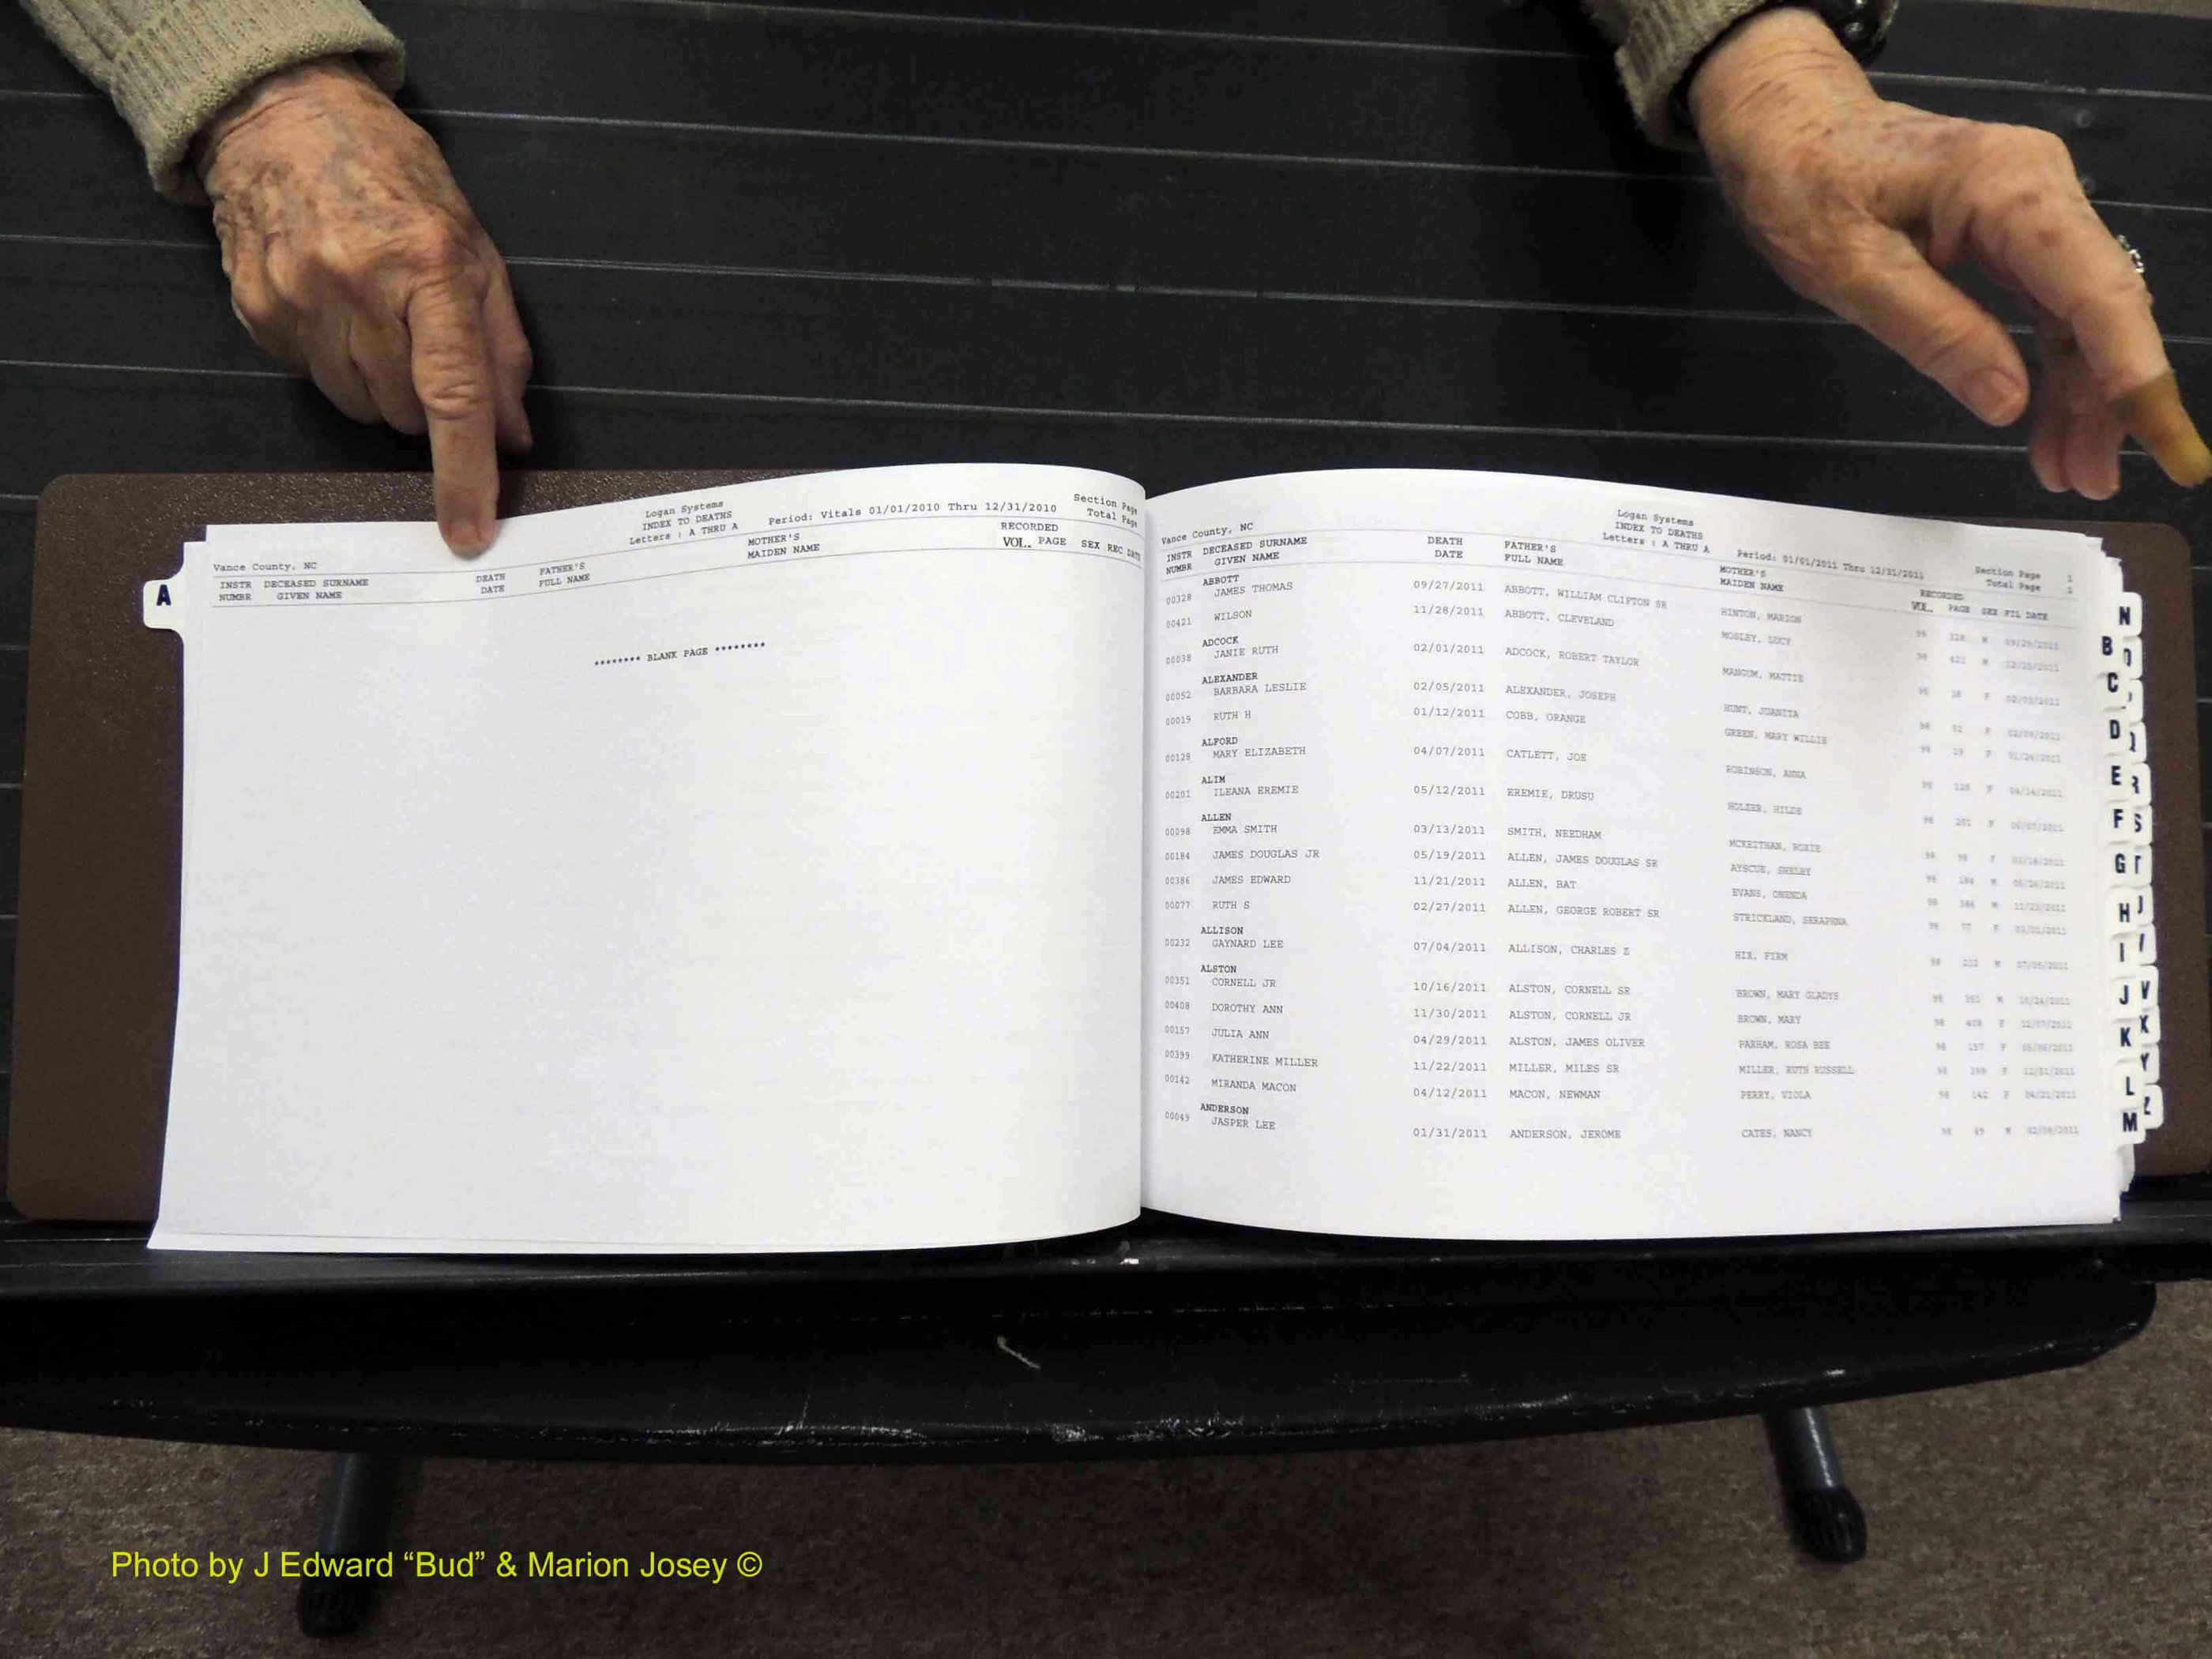 A
Logan Systems
INDEX TO DEATHS
Letters : A THRU A
Period: Vitals 01/01/2010 Thru 12/31/2010
Section Page
Total Page
Vance County, NC
INSTR NUMBR DECEASED SURNAME GIVEN NAME DEATH DATE FATHER'S FULL NAME MOTHER'S MAIDEN NAME RECORDED VOL. PAGE SEX REC DATE
******** BLANK PAGE ********
Logan Systems
INDEX TO DEATHS
Letters : A THRU A
Period: 01/01/2011 Thru 12/31/2011
Section Page 1
Total Page 1
Vance County, NC
INSTR NUMBR DECEASED SURNAME GIVEN NAME DEATH DATE FATHER'S FULL NAME MOTHER'S MAIDEN NAME RECORDED VOL. PAGE SEX FIL DATE
ABBOTT
00328 JAMES THOMAS 09/27/2011 ABBOTT, WILLIAM CLIFTON SR HINTON, MARION 98 328 M 09/29/2011
00421 WILSON 11/28/2011 ABBOTT, CLEVELAND MOSLEY, LUCY 98 421 M
ADCOCK
00038 JANIE RUTH 02/01/2011 ADCOCK, ROBERT TAYLOR MANGUM, MATTIE 98 38 F
ALEXANDER
00052 BARBARA LESLIE 02/05/2011 ALEXANDER, JOSEPH HUNT, JUANITA 98 52 F 02/09/2011
00019 RUTH H 01/12/2011 COBB, ORANGE GREEN, MARY WILLIE 98 19 F
ALFORD
00128 MARY ELIZABETH 04/07/2011 CATLETT, JOE ROBINSON, ANNA 98 128 F 04/14/2011
ALIM
00201 ILEANA EREMIE 05/12/2011 EREMIE, DRUSU HOLZER, HILDE 98 201 F 06/07/2011
ALLEN
00098 EMMA SMITH 03/13/2011 SMITH, NEEDHAM MCKEITHAN, ROXIE 98 98 F
00184 JAMES DOUGLAS JR 05/19/2011 ALLEN, JAMES DOUGLAS SR AYSCUE, SHELBY 98 184 M 05/26/2011
00386 JAMES EDWARD 11/21/2011 ALLEN, BAT EVANS, ONENDA 98 386 M 11/23/2011
00077 RUTH S 02/27/2011 ALLEN, GEORGE ROBERT SR STRICKLAND, SERAPHNA 98 77 F
ALLISON
00232 GAYNARD LEE 07/04/2011 ALLISON, CHARLES Z HIX, FIRM 98 232 M 07/05/2011
ALSTON
00351 CORNELL JR 10/16/2011 ALSTON, CORNELL SR BROWN, MARY GLADYS 98 351 M 10/24/2011
00408 DOROTHY ANN 11/30/2011 ALSTON, CORNELL JR BROWN, MARY 98 408 F 12/07/2011
00157 JULIA ANN 04/29/2011 ALSTON, JAMES OLIVER PARHAM, ROSA BEE 98 157 F 05/06/2011
00399 KATHERINE MILLER 11/22/2011 MILLER, MILES SR MILLER, RUTH RUSSELL 98 399 F 12/01/2011
00142 MIRANDA MACON 04/12/2011 MACON, NEWMAN PERRY, VIOLA 98 142 F 04/21/2011
ANDERSON
00049 JASPER LEE 01/31/2011 ANDERSON, JEROME CATES, NANCY 98 49 M 02/08/2011
N
B
C
D
E R
F S
G T
H
I
J V
K X
Y
L
M Z
Photo by J Edward “Bud” & Marion Josey ©